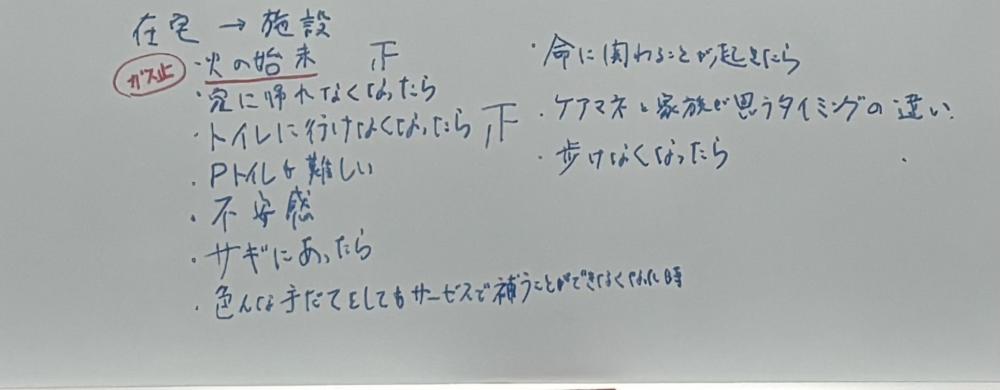 在宅 → 施設
ガス止
・火の始末 下
・家に帰れなくなったら
・トイレに行けなくなったら 下
・Pトイレも難しい
・不安感
・サギにあったら
・色んな手だてをしてもサービスで補うことができなくなった時
・命に関わることが起きたら
・ケアマネと家族が思うタイミングの違い.
・歩けなくなったら